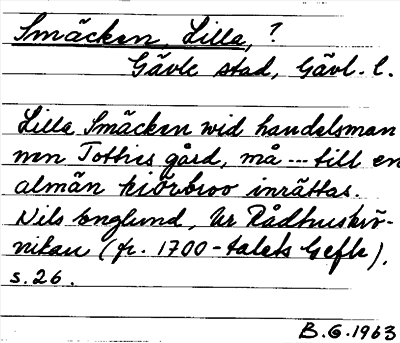 Smäcken, Lilla, ?
Gävle stad, Gävl. l.
Lilla Smäcken wid handelsman
nen Totties gård, må --- till en
almän kiörbroo inrättas.
Nils Englund, Ur Rådhuskrö-
nikan (fr. 1700-talets Gefle),
s. 26.
B.G. 1963